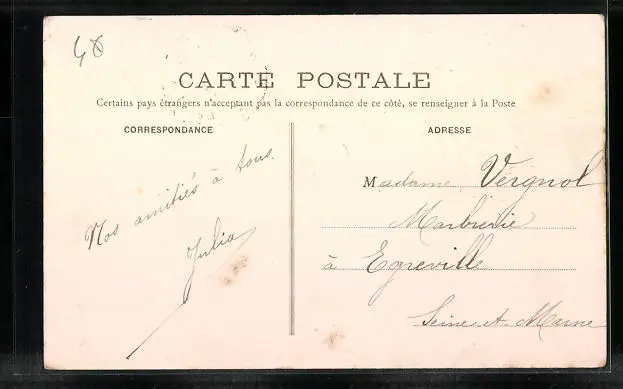 48
CARTE POSTALE
Certains pays étrangers n'acceptant pas la correspondance de ce côté, se renseigner à la Poste
CORRESPONDANCE
Nos amitiés à tous.
Julia
ADRESSE
Madame Vergnol
Marbrerie
à Egreville
Seine-et-Marne